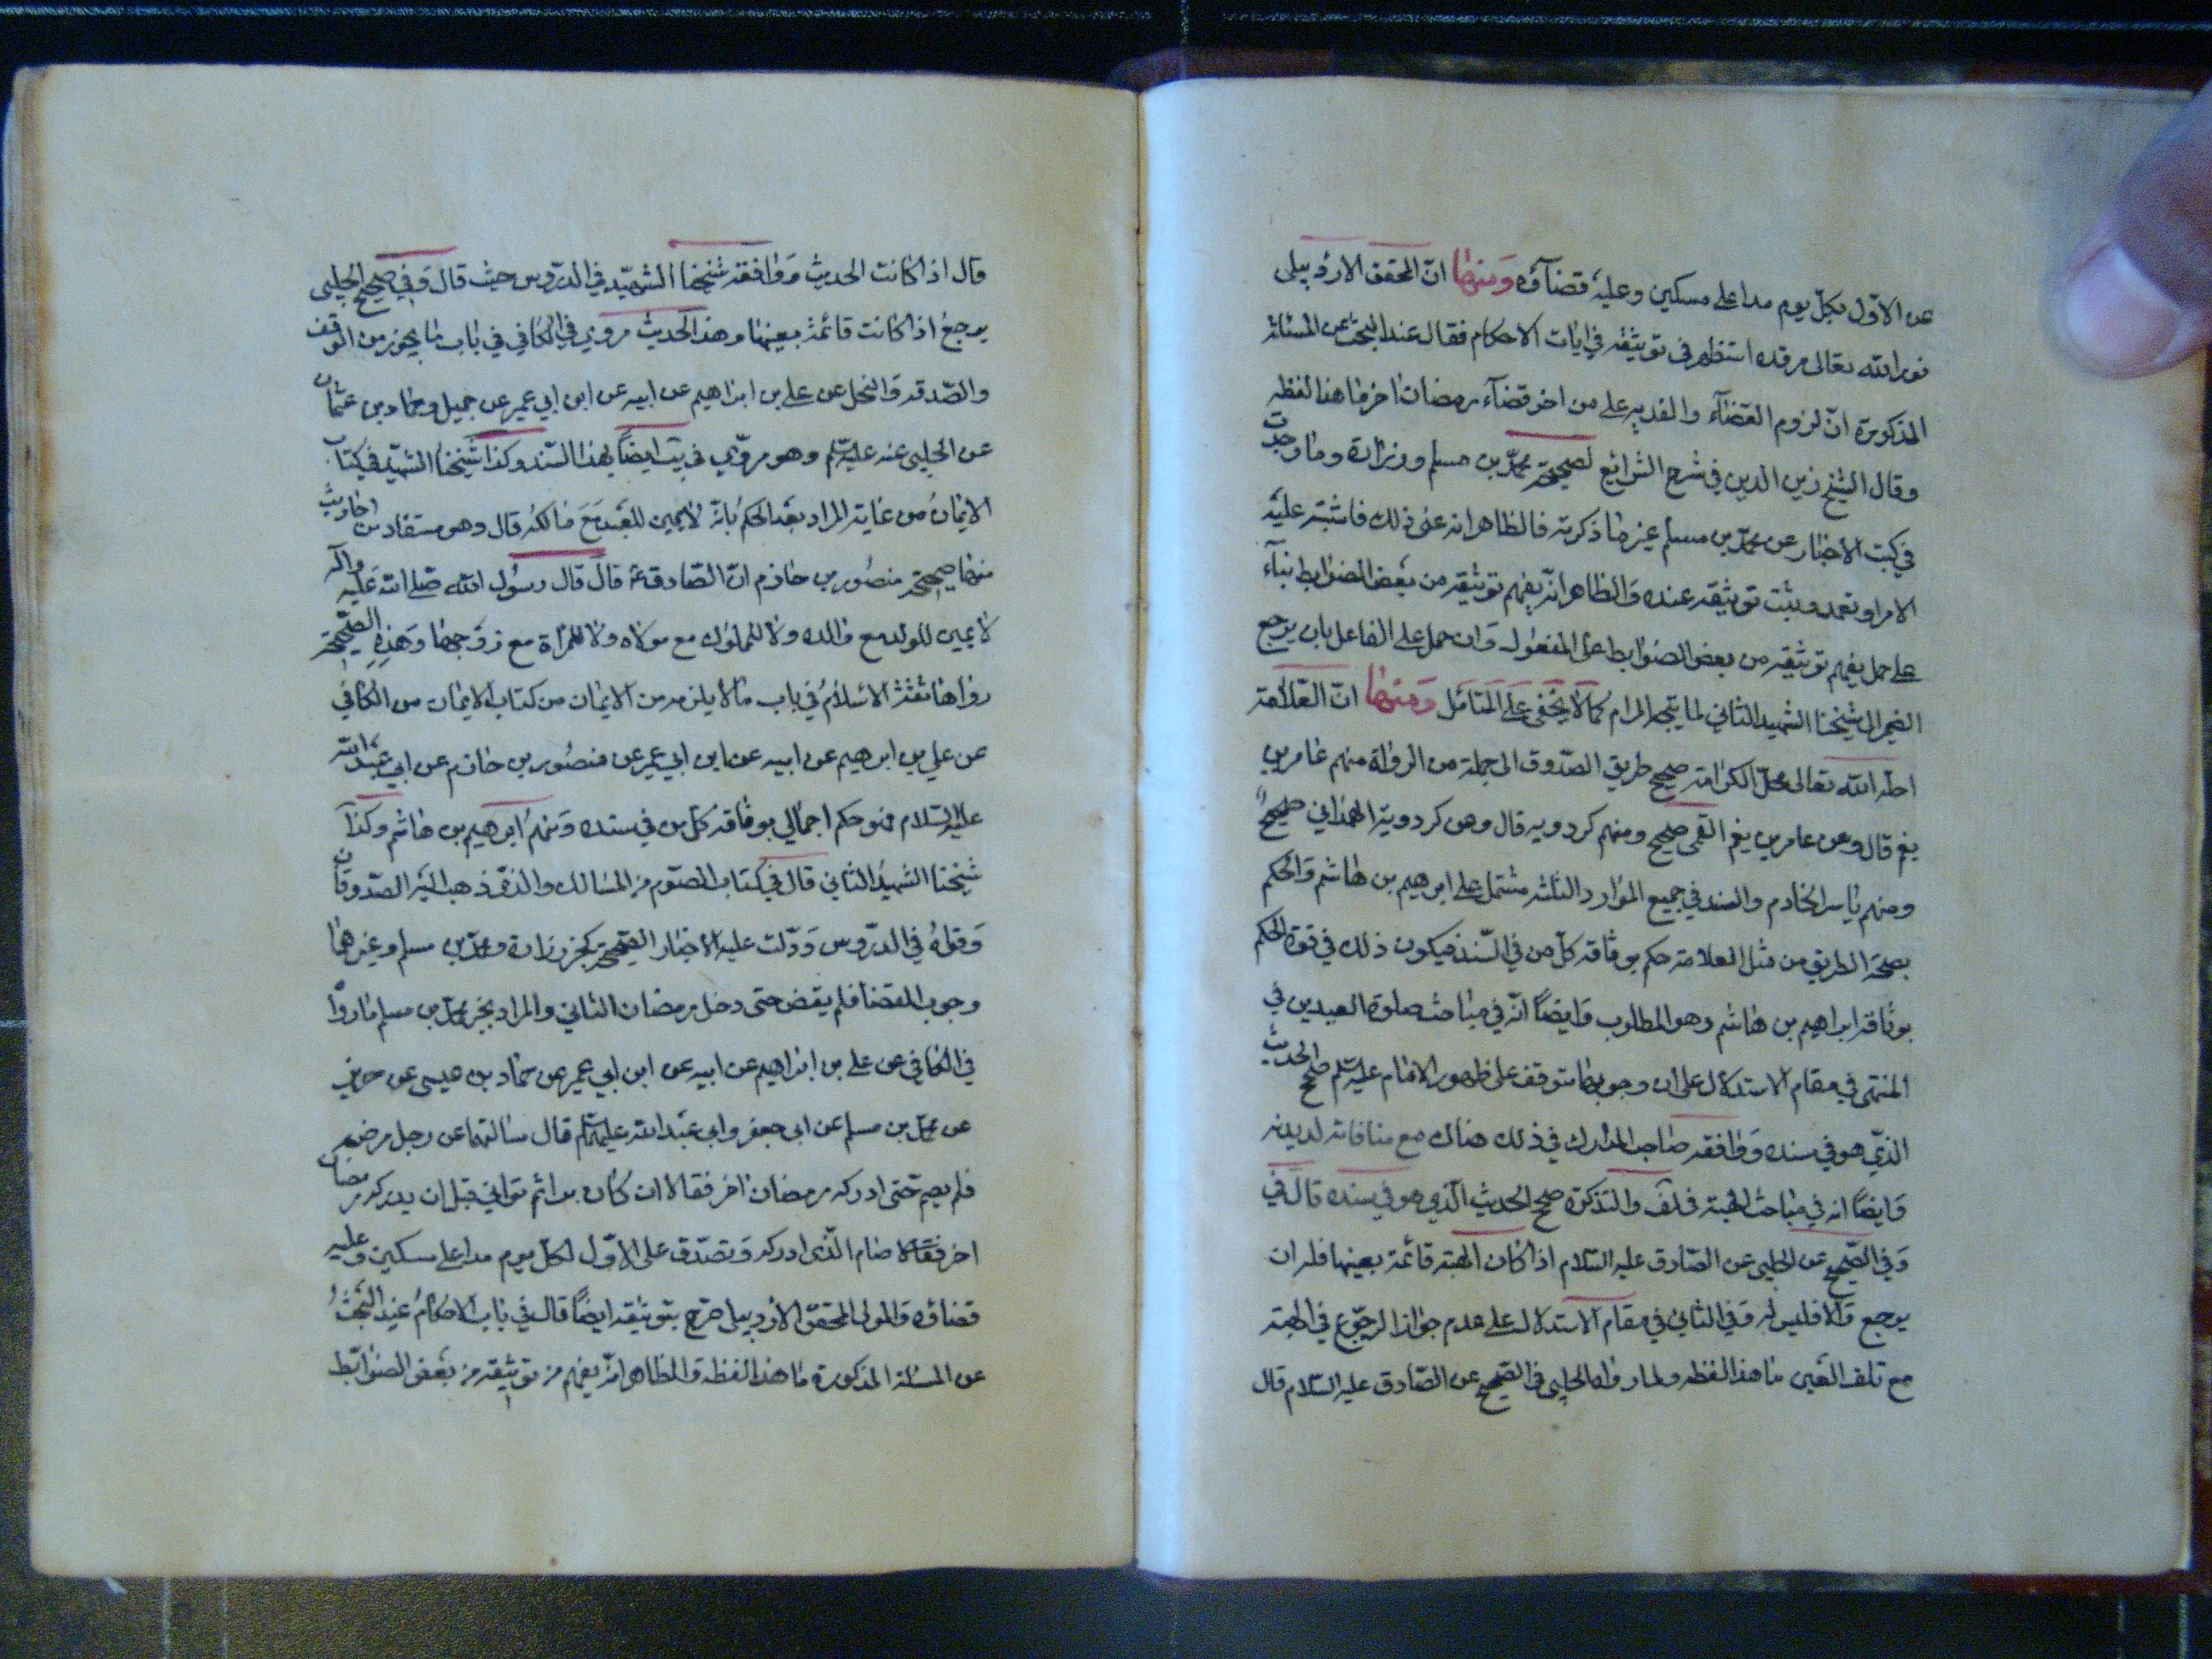 عن الاوّل بكلّ يوم مدا على مسكين وعليه قضآؤه ومنها انّ المحقق الاردبيلى
نور الله تعالى مرقده استظهر فى توثيقه في ايات الاحكام فقال عند البحث عن المسئلة
المذكورة انّ لزوم القضآء والفديه على من اخر قضآء رمضان اخر ما هذا لفظه
وقال الشيخ زين الدين في شرح الشرايع لصحيحة محمّد بن مسلم وزرارة وما وجدت
في كتب الاخبار عن محمّد بن مسلم غير ما ذكرته فالظاهر انه عنى ذلك فاشتبه عليه
الامر او تعمد وثبت توثيقه عنده والظاهر انّه يفهم توثيقه من بعض الضوابط بناء
على حمل يفهم توثيقه من بعض الضوابط على المفعول وان حمل على الفاعل بان يرجع
الضمير الى شيخنا الشهيد الثاني لما يتجه المرام كما لا يخفى على المتامّل ومنها انّ العلّامة
احلّه الله تعالى محلّ الكرامة صحح طريق الصّدوق الى جملة من الرواة منهم عامر بن
نعيم قال وعن عامر بن نعيم القمى صحيح ومنهم كردويه قال وعن كردوية الهمداني صحيح
ومنهم ياسر الخادم والسند في جميع الموارد الثلثه مشتمل على ابرهيم بن هاشم والحكم
بصحة الطريق من مثل العلامة حكم بوثاقة كلّ من في السّند فيكون ذلك في قوة الحكم
بوثاقة ابراهيم بن هاشم وهو المطلوب وايضًا انّه في مباحث صلوة العيدين في
المنتهى في مقام الاستدلال على ان وجوبها متوقف على ظهور الامام عليه السّلم صحح الحديث
الذّي هو في سنده ووافقه صاحب المدارك في ذلك هناك مع منافاته لديدنه
وايضًا انه في مباحث الهبة في لف والتذكرة صحح الحديث الّذي هو في سنده قال في
وفي الصّحيح عن الحلبى عن الصّادق عليه السّلام اذا كان الهبة قائمة بعينها فله ان
يرجع والّا فليس له وفي الثاني في مقام الاستدلال على عدم جواز الرجوع في الهبة
مع تلف العين ما هذا لفظه ولما رواه الحلبى فى الصّحيح عن الصّادق عليه السّلام قال
قال اذا كانت الحديث ووافقه شيخنا الشهيّد في الدرّوس حيث قال وفي صحيح الحلبى
يرجع اذا كانت قائمة بعينها وهذا الحديث مروي في الكافي في باب ما يجوز من الوقف
والصّدقه والنحل عن علي بن ابراهيم عن ابيه عن ابن ابي عمير عن جميل وحماد بن عثمان
عن الحلبى عنه عليه السّلم وهو مروّي في يب ايضًا بهذا السّند وكذا شيخنا الشهيّد في كتاب
الايمان من غاية المراد بعد الحكم بانّه لا يمين للعبد مع مالكه قال وهو مستفاد من احاديث
منها صحيحة منصور بن حازم انّ الصّادق ع قال قال رسول الله صلى الله عليه واله
لا يمين للولد مع والده ولا للمملوك مع مولاه ولا للمرأة مع زوجها وهذه الصّحيحة
رواها ثقة الاسلام في باب ما لا يلزم من الايمان من كتاب الايمان من الكافي
عن علي بن ابرهيم عن ابيه عن ابن ابي عمير عن منصور بن حازم عن ابي عبد الله
عليه السّلام فهو حكم اجمالي بوثاقة كل من في سنده ومنهم ابرهيم بن هاشم وكذا
شيخنا الشهيد الثاني قال في كتاب الصّوم من المسالك والذى ذهب اليه الصّدوقان
وقوله في الدرّوس ودلّت عليه الاخبار الصّحيحة كخبر زرارة ومحمّد بن مسلم وغيرهما
وجوب القضا فلم يقض حتى دخل رمضان الثاني والمراد بخبر محمّد بن مسلم ما روا
في الكافي عن علي بن ابراهيم عن ابيه عن ابن ابي عمير عن حماد بن عيسى عن حريز
عن محمّد بن مسلم عن ابى جعفر وابى عبد الله عليهما السّلم قال سالتهما عن رجل مرض
فلم يصم حتى ادركه رمضان اخر فقالا ان كان برا ثم توانى قبل ان يدركه رمضان
اخر فقالا صام الذى ادركه وتصدّق على الاوّل لكلّ يوم مدا على مسكين وعليه
قضاؤه والمولى المحقق الاردبيلى صرّح بتوثيقه ايضًا قال في باب الاحكام عند البحث
عن المسئلة المذكورة ما هذا لفظه والظاهر انّه يفهم من توثيقه من بعض الضوابط